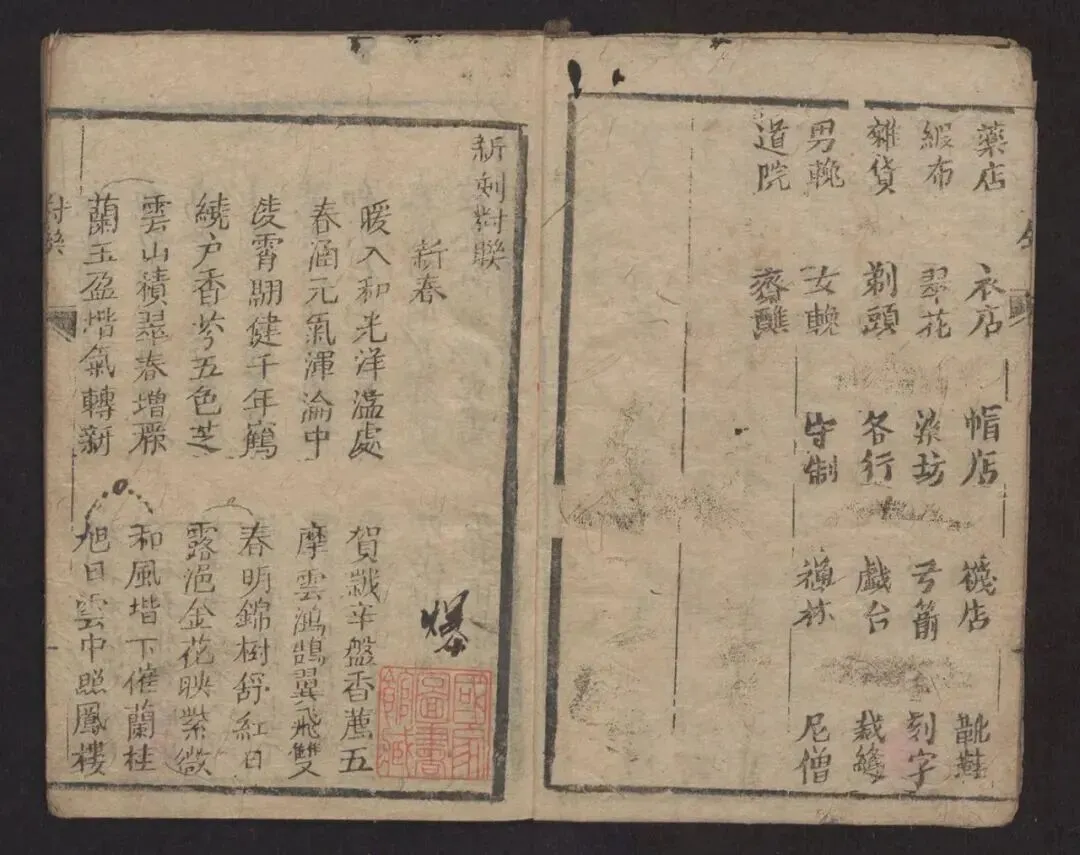 藥店 衣店 帽店 襪店 靴鞋
緞布 翠花 染坊 弓箭 刻字
雜貨 剃頭 各行 戲台 裁縫
男輓 女輓 守制 禪林 尼僧
道院 齋醮
新刻對聯
新春
暖入和光洋溢處 賀歲辛盤香薦五
春涵元氣渾淪中 摩雲鴻鵠翼飛雙
凌霄翮健千年鶴 春明錦樹舒紅日
繞户香芬五色芝 露浥金花映紫微
雲山積翠春增麗 和風堦下催蘭桂
蘭玉盈堦氣轉新 旭日雲中照鳳樓
國家圖書館藏